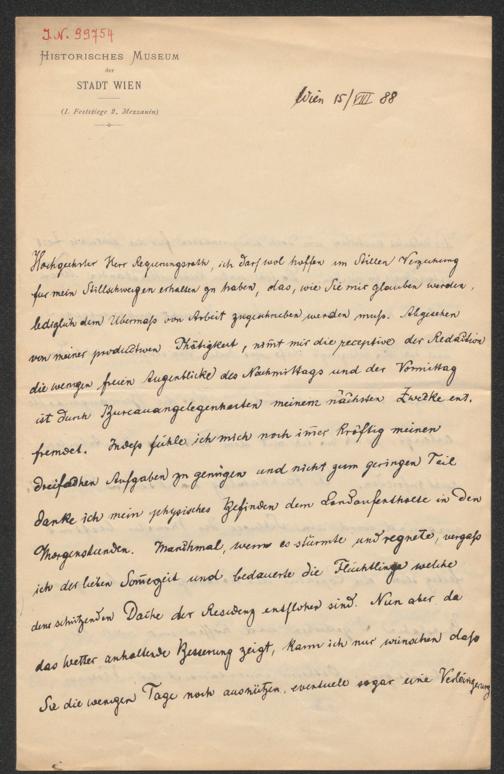 J.N. 99754
HISTORISCHES MUSEUM
der
STADT WIEN
(I. Feststiege 2, Mezzanin)
Wien 15/VIII 88
Hochgeehrter Herr Regierungsrath, ich darf wol hoffen im Stillen Verzeihung
für mein Stillschweigen erhalten zu haben, das, wie Sie mir glauben werden,
lediglich dem Übermaß von Arbeit zugeschrieben werden muß. Abgesehen
von meiner productiven Thätigkeit, nimt mir die receptive der Redaction
die wenigen freien Augenblicke des Nachmittags und der Vormittag
ist durch Bureauangelegenheiten meinem nächsten Zwecke ent-
fremdet. Indeß fühle ich mich noch imer kräftig meinen
dreifachen Aufgaben zu genügen und nicht zum geringen Teil
danke ich mein physisches Befinden dem Landaufenthalte in den
Morgenstunden. Manchmal, wenn es stürmte und regnete, vergaß
ich der lieben Somerzeit und bedauerte die Flüchtlinge welche
dem schützenden Dache der Residenz entflohen sind. Nun aber da
das Wetter anhaltende Besserung zeigt, kann ich nur wünschen daß
Sie die wenigen Tage noch ausnützen, eventuele sogar eine Verlängerung